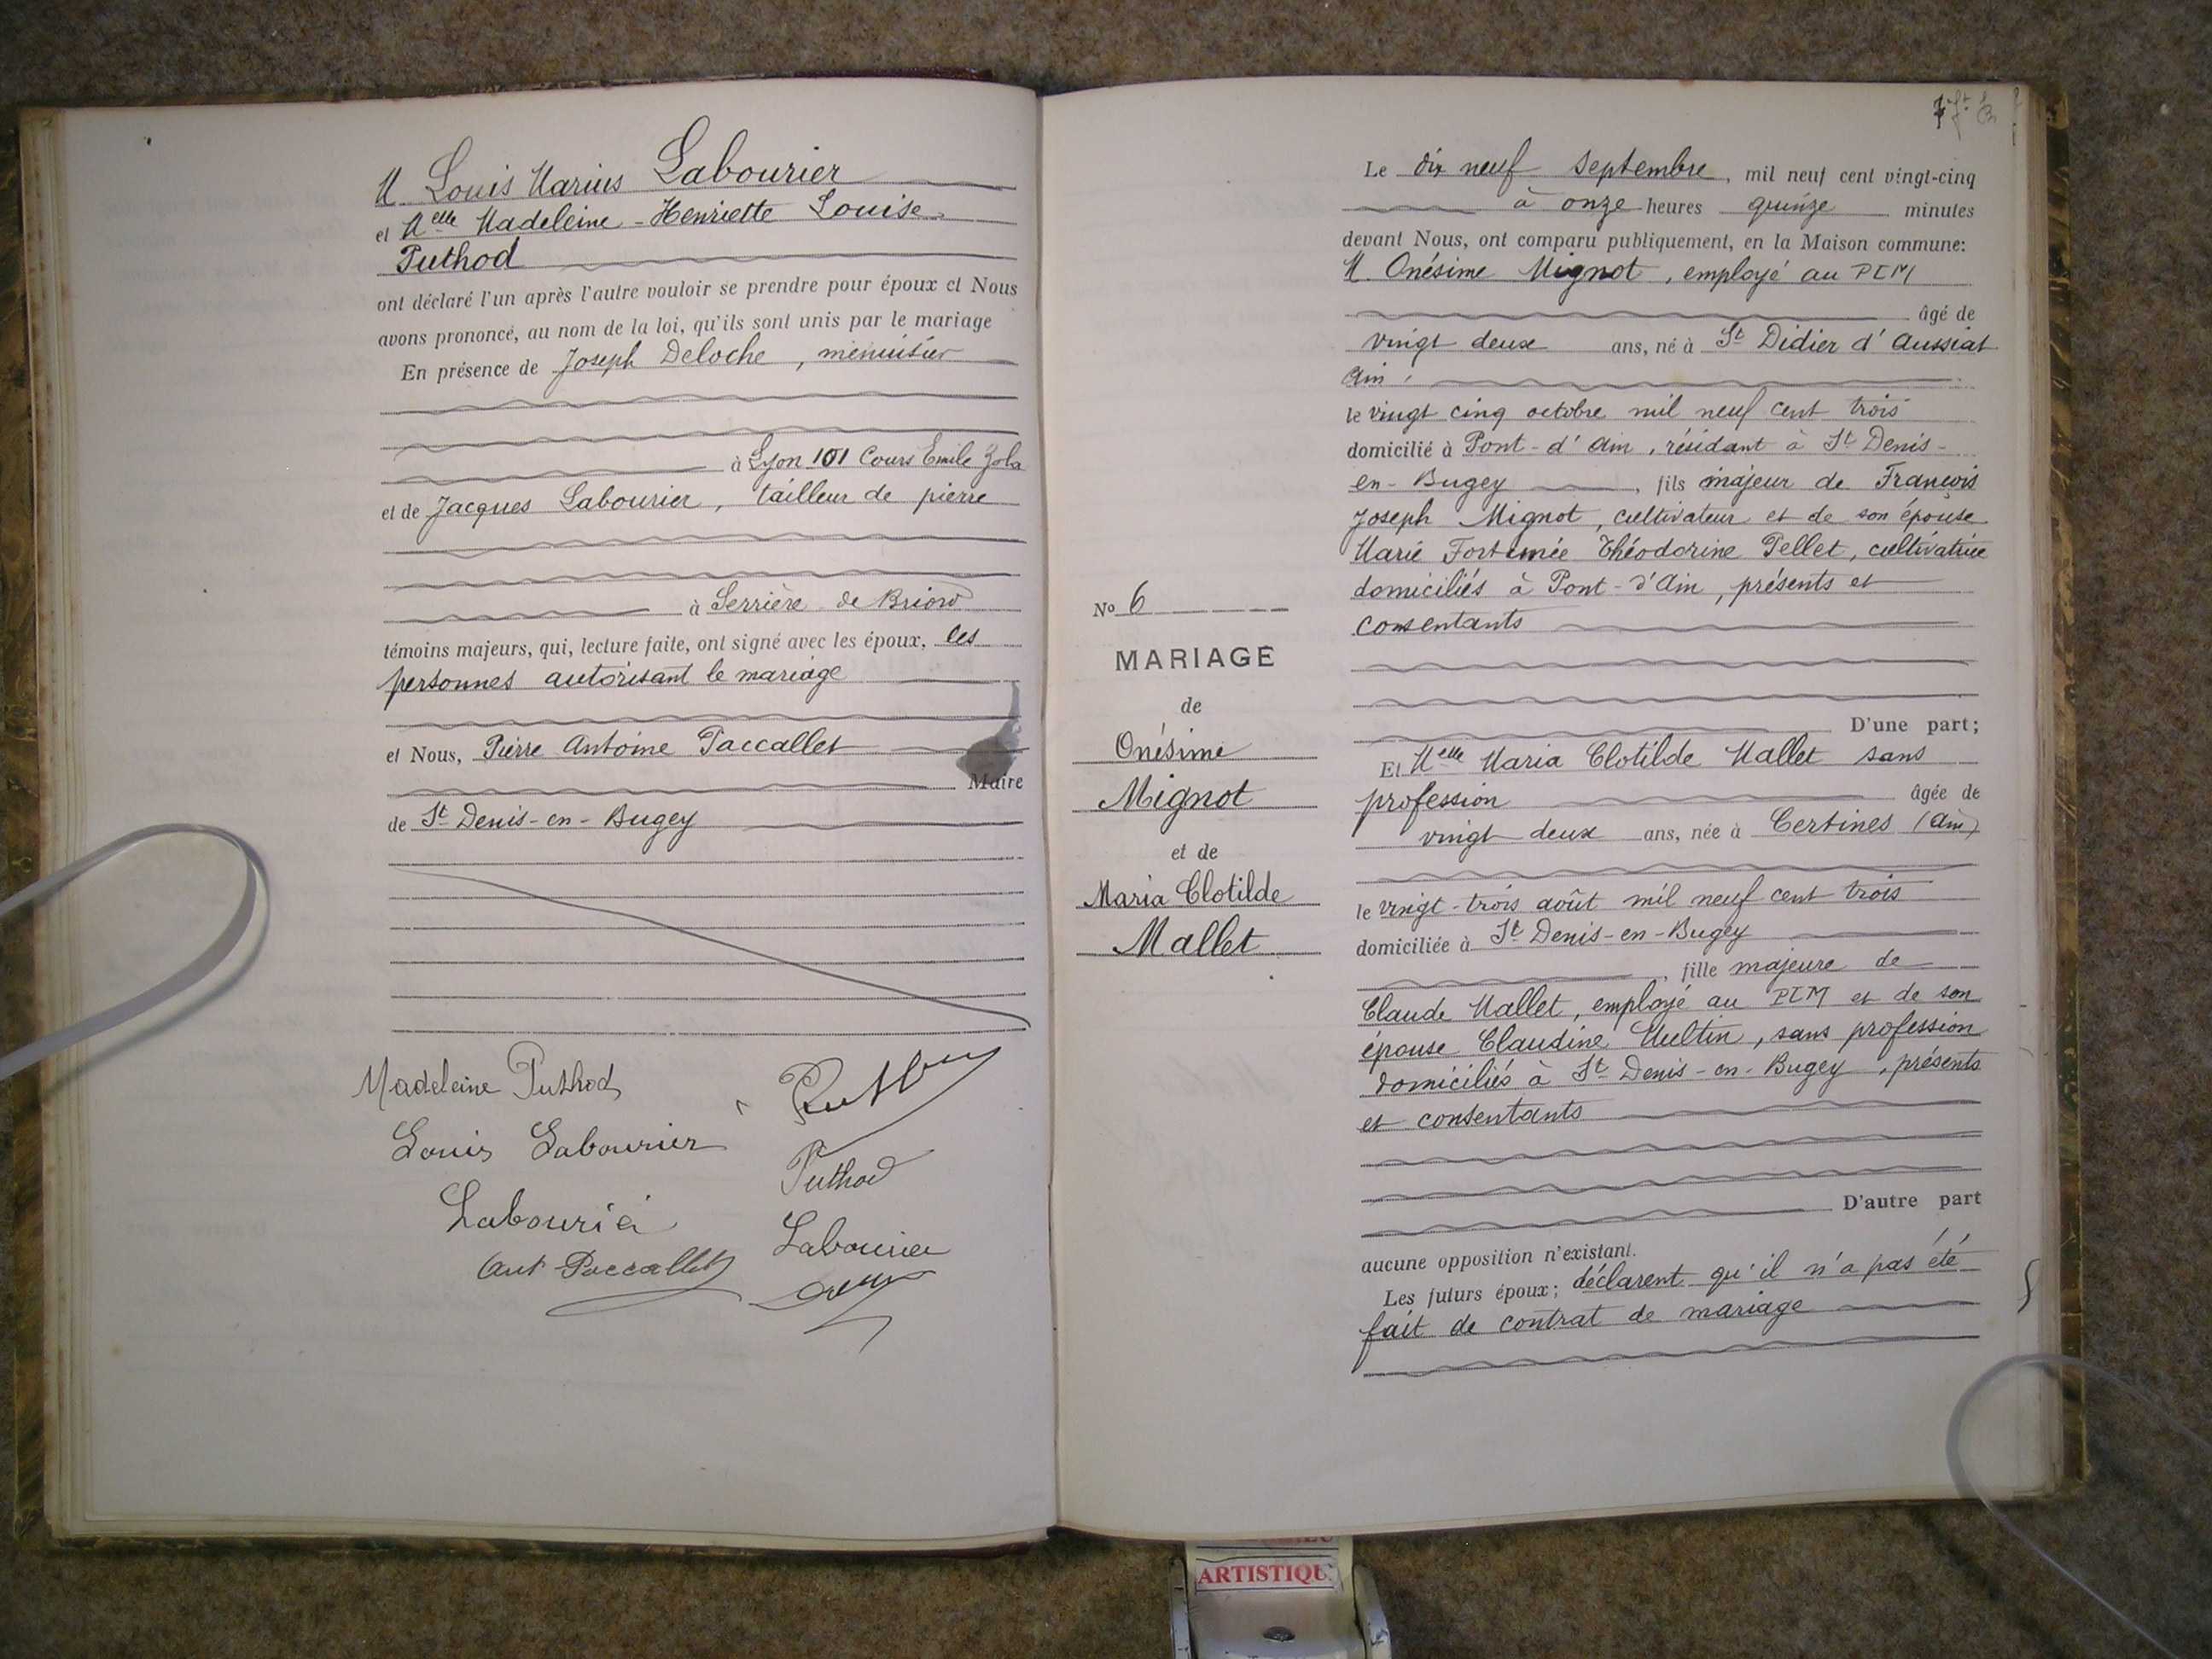 M. Louis Marius Labourier
et Melle Madeleine-Henriette Louise
Puthod
ont déclaré l'un après l'autre vouloir se prendre pour époux et Nous
avons prononcé, au nom de la loi, qu'ils sont unis par le mariage
En présence de Joseph Deloche, menuisier
à Lyon 101 Cours Emile Zola
et de Jacques Labourier, tailleur de pierre
à Serrière de Briord
témoins majeurs, qui, lecture faite, ont signé avec les époux, les
personnes autorisant le mariage
et Nous, Pierre Antoine Paccallet
Maire
de St Denis-en-Bugey
Madeleine Puthod
Louis Labourier
Puthod
Labourier
Labourier
Ant Paccallet
No 6
MARIAGE
de
Onésime
Mignot
et de
Maria Clotilde
Mallet
Le dix neuf septembre, mil neuf cent vingt-cinq
à onze heures quinze minutes
devant Nous, ont comparu publiquement, en la Maison commune:
M. Onésime Mignot, employé au PLM
âgé de
vingt deux ans, né à St Didier d'Aussiat
Ain,
le vingt cinq octobre mil neuf cent trois
domicilié à Pont-d'Ain, résidant à St Denis-
en-Bugey, fils majeur de François
Joseph Mignot, cultivateur et de son épouse
Marie Fortunée Théodorine Pellet, cultivatrice
domiciliés à Pont-d'Ain, présents et
consentants
D'une part;
Et Melle Maria Clotilde Mallet sans
profession âgée de
vingt deux ans, née à Certines (Ain)
le vingt-trois août mil neuf cent trois
domiciliée à St Denis-en-Bugey
, fille majeure de
Claude Mallet, employé au PLM et de son
épouse Claudine Multin, sans profession
domiciliés à St Denis-en-Bugey, présents
et consentants
D'autre part
aucune opposition n'existant.
Les futurs époux; déclarent qu'il n'a pas été
fait de contrat de mariage
ARTISTIQU